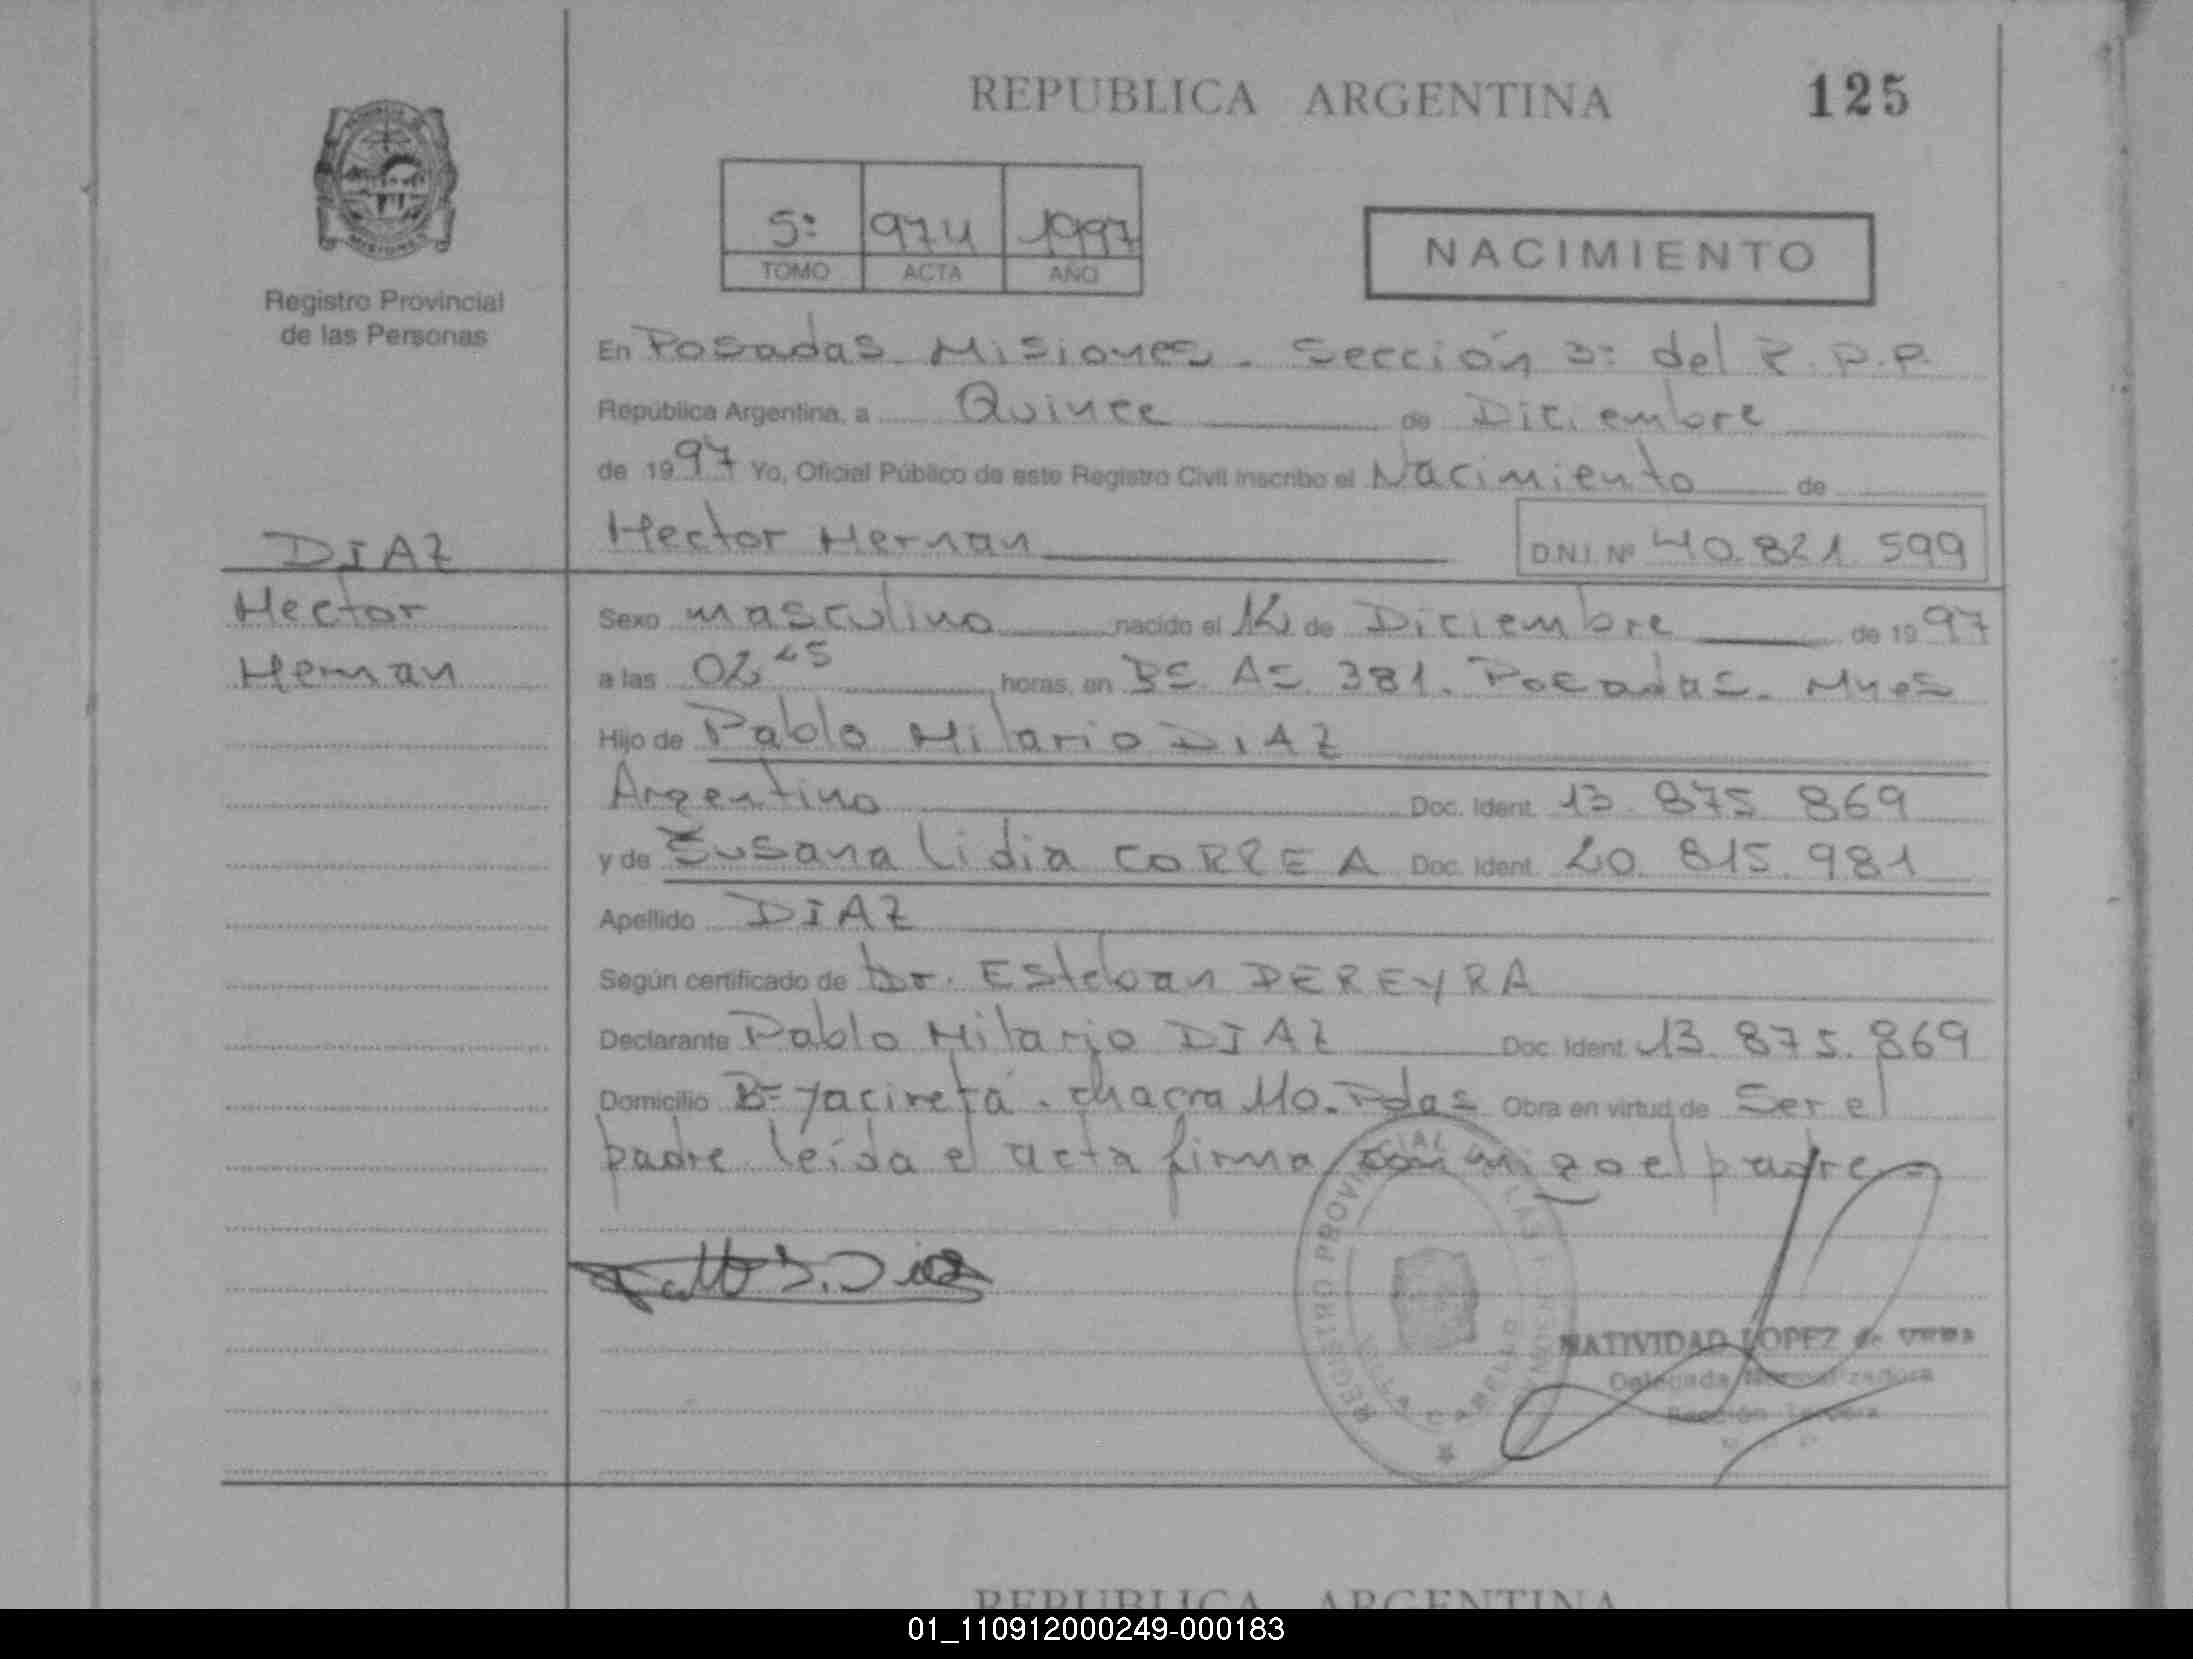 REPUBLICA ARGENTINA 125
5º 974 1997
TOMO ACTA AÑO
NACIMIENTO
MISIONES
Registro Provincial
de las Personas
En Posadas Misiones. Sección 3º del R.P.P.
República Argentina, a Quince de Diciembre
de 1997 Yo, Oficial Público de este Registro Civil inscribo el Nacimiento de
Hector Hernan D.N.I. Nº 40.821.599
DIAZ
Hector
Hernan
Sexo masculino nacido el de Diciembre de 1997
a las 02 45 horas, en Bs. As. 381. Posadas. Mnes
Hijo de Pablo Hilario DIAZ
Argentino Doc. Ident. 13.875.869
y de Susana Lidia CORREA Doc. Ident. 20.815.981
Apellido DIAZ
Según certificado de Dr. Esteban PEREYRA
Declarante Pablo Hilario DIAZ Doc. Ident. 13.875.869
Domicilio Bº Yacireta. chacra 110. Pdas Obra en virtud de Ser el
padre leída el acta firma conmigo el padre
REGISTRO PROVINCIAL DE LAS PERSONAS
VILLA CABELLO
NATIVIDAD LOPEZ de
Delegada Normalizadora
Sección Tercera
REPUBLICA ARGENTINA
01_110912000249-000183